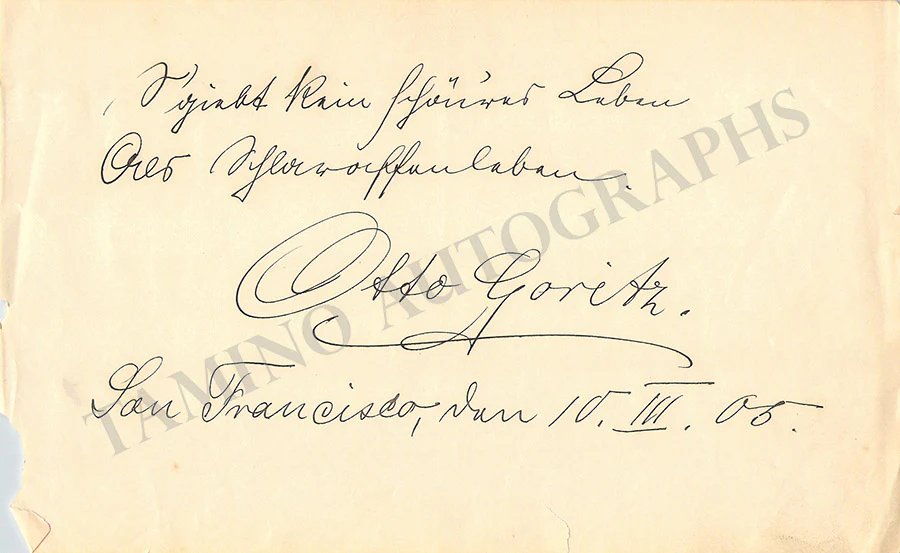 S'giebt kein schön'res Leben
Als Schlaraffenleben.
Otto Goritz.
San Francisco, den 10. III. 05.
TAMINO AUTOGRAPHS